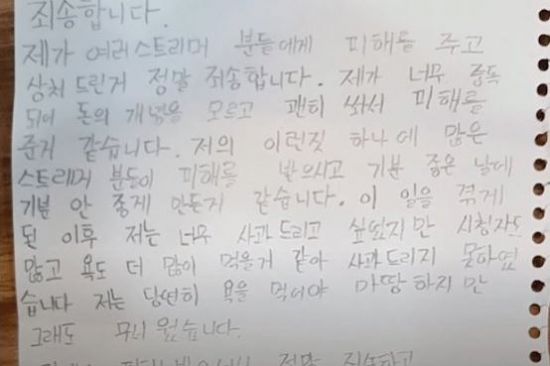 죄송합니다.
제가 여러스트리머 분들에게 피해를 주고
상처 드린거 정말 죄송합니다. 제가 너무 중독
되어 돈의 개념을 모르고 괜히 쏴서 피해를
준거 같습니다. 저의 이런짓 하나에 많은
스트리머 분들이 피해를 받으시고 기분 좋은 날에
기분 안 좋게 만든거 같습니다. 이 일을 겪게
된 이후 저는 너무 사과드리고 싶었지만 시청자도
많고 욕도 더 많이 먹을거 같아 사과드리지 못하였
습니다 저는 당연히 욕을 먹어야 마땅하지만
그래도 무서웠습니다.
정말 죄송하고